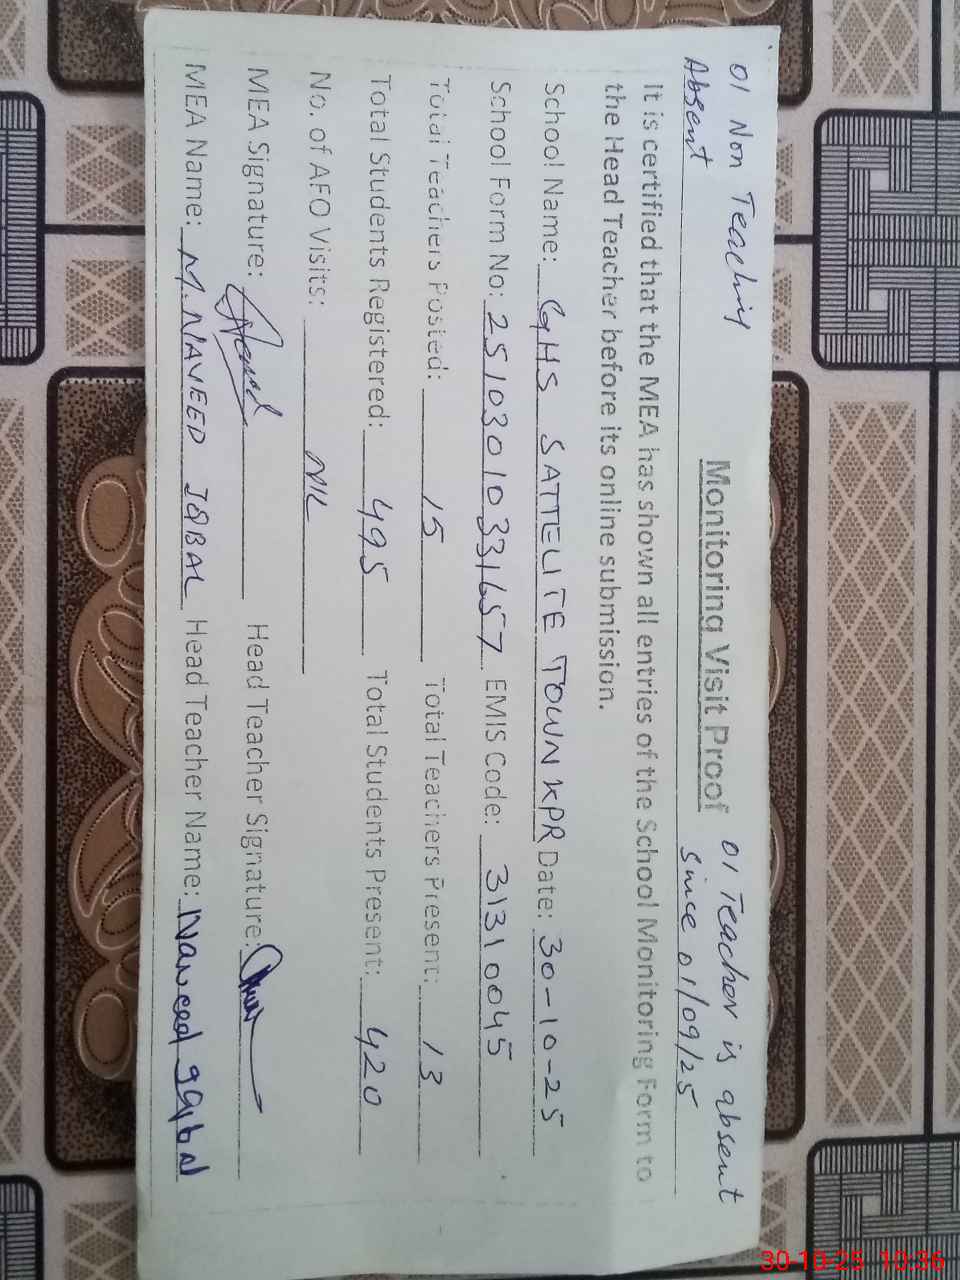 01 Non Teaching
Absent
Monitoring Visit Proof
01 Teacher is absent
since 01/09/25
It is certified that the MEA has shown all entries of the School Monitoring Form to
the Head Teacher before its online submission.
School Name: GHS SATTELITE TOWN KPR Date: 30-10-25
School Form No: 25103010331657 EMIS Code: 31310045
Total Teachers Posted: 15 Total Teachers Present: 13
Total Students Registered: 495 Total Students Present: 420
No. of AEO Visits: NIL
MEA Signature: Head Teacher Signature:
MEA Name: M. NAVEED IQBAL Head Teacher Name: Naveed Iqbal
30-10-25 10:36